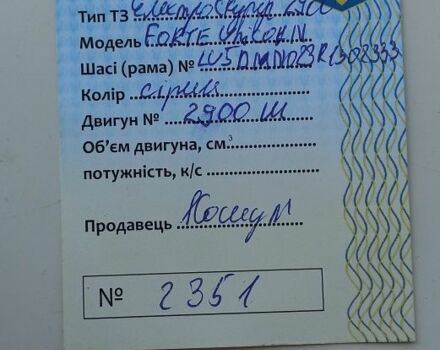 Тип ТЗ Електроскутер
Модель FORTE Unicorn
Шасі (рама) №
Колір сірий
Двигун № 2900 Ш
Об'єм двигуна, см³
потужність, к/с
Продавець
№ 2351